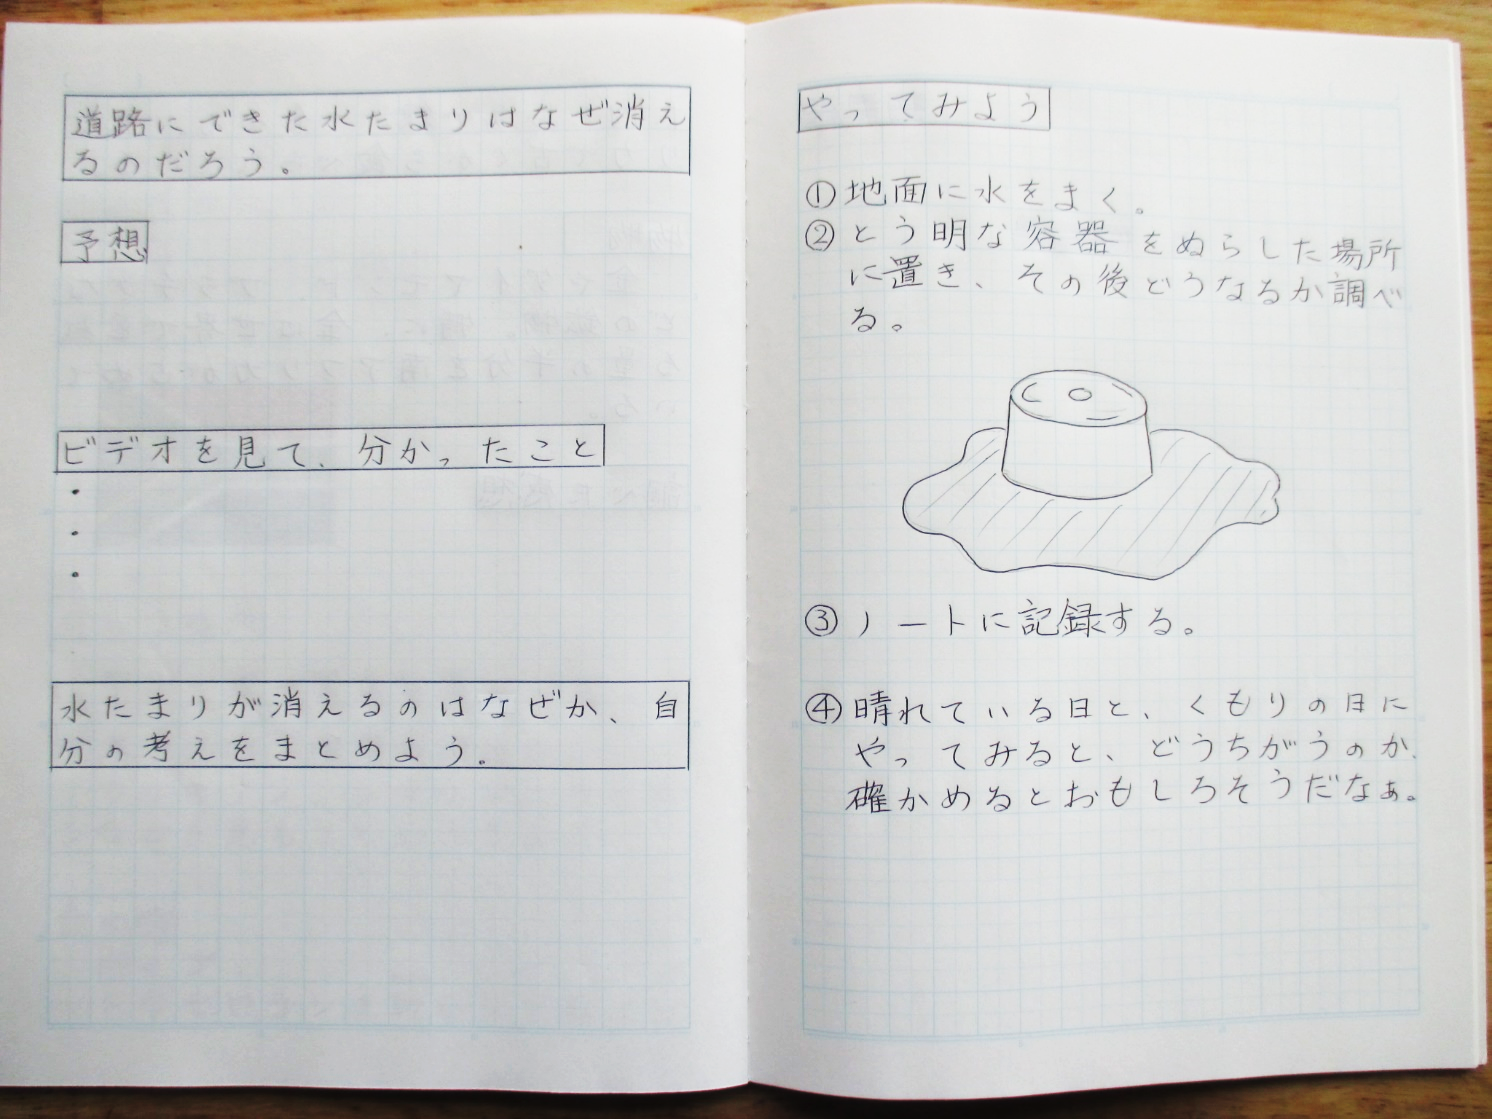 道路にできた水たまりはなぜ消え
るのだろう。
予想
ビデオを見て、分かったこと
・
・
・
水たまりが消えるのはなぜか、自
分の考えをまとめよう。
やってみよう
①地面に水をまく。
②とう明な容器をぬらした場所
に置き、その後どうなるか調べ
る。
③ノートに記録する。
④晴れている日と、くもりの日に
やってみると、どうちがうのか、
確かめるとおもしろそうだなぁ。